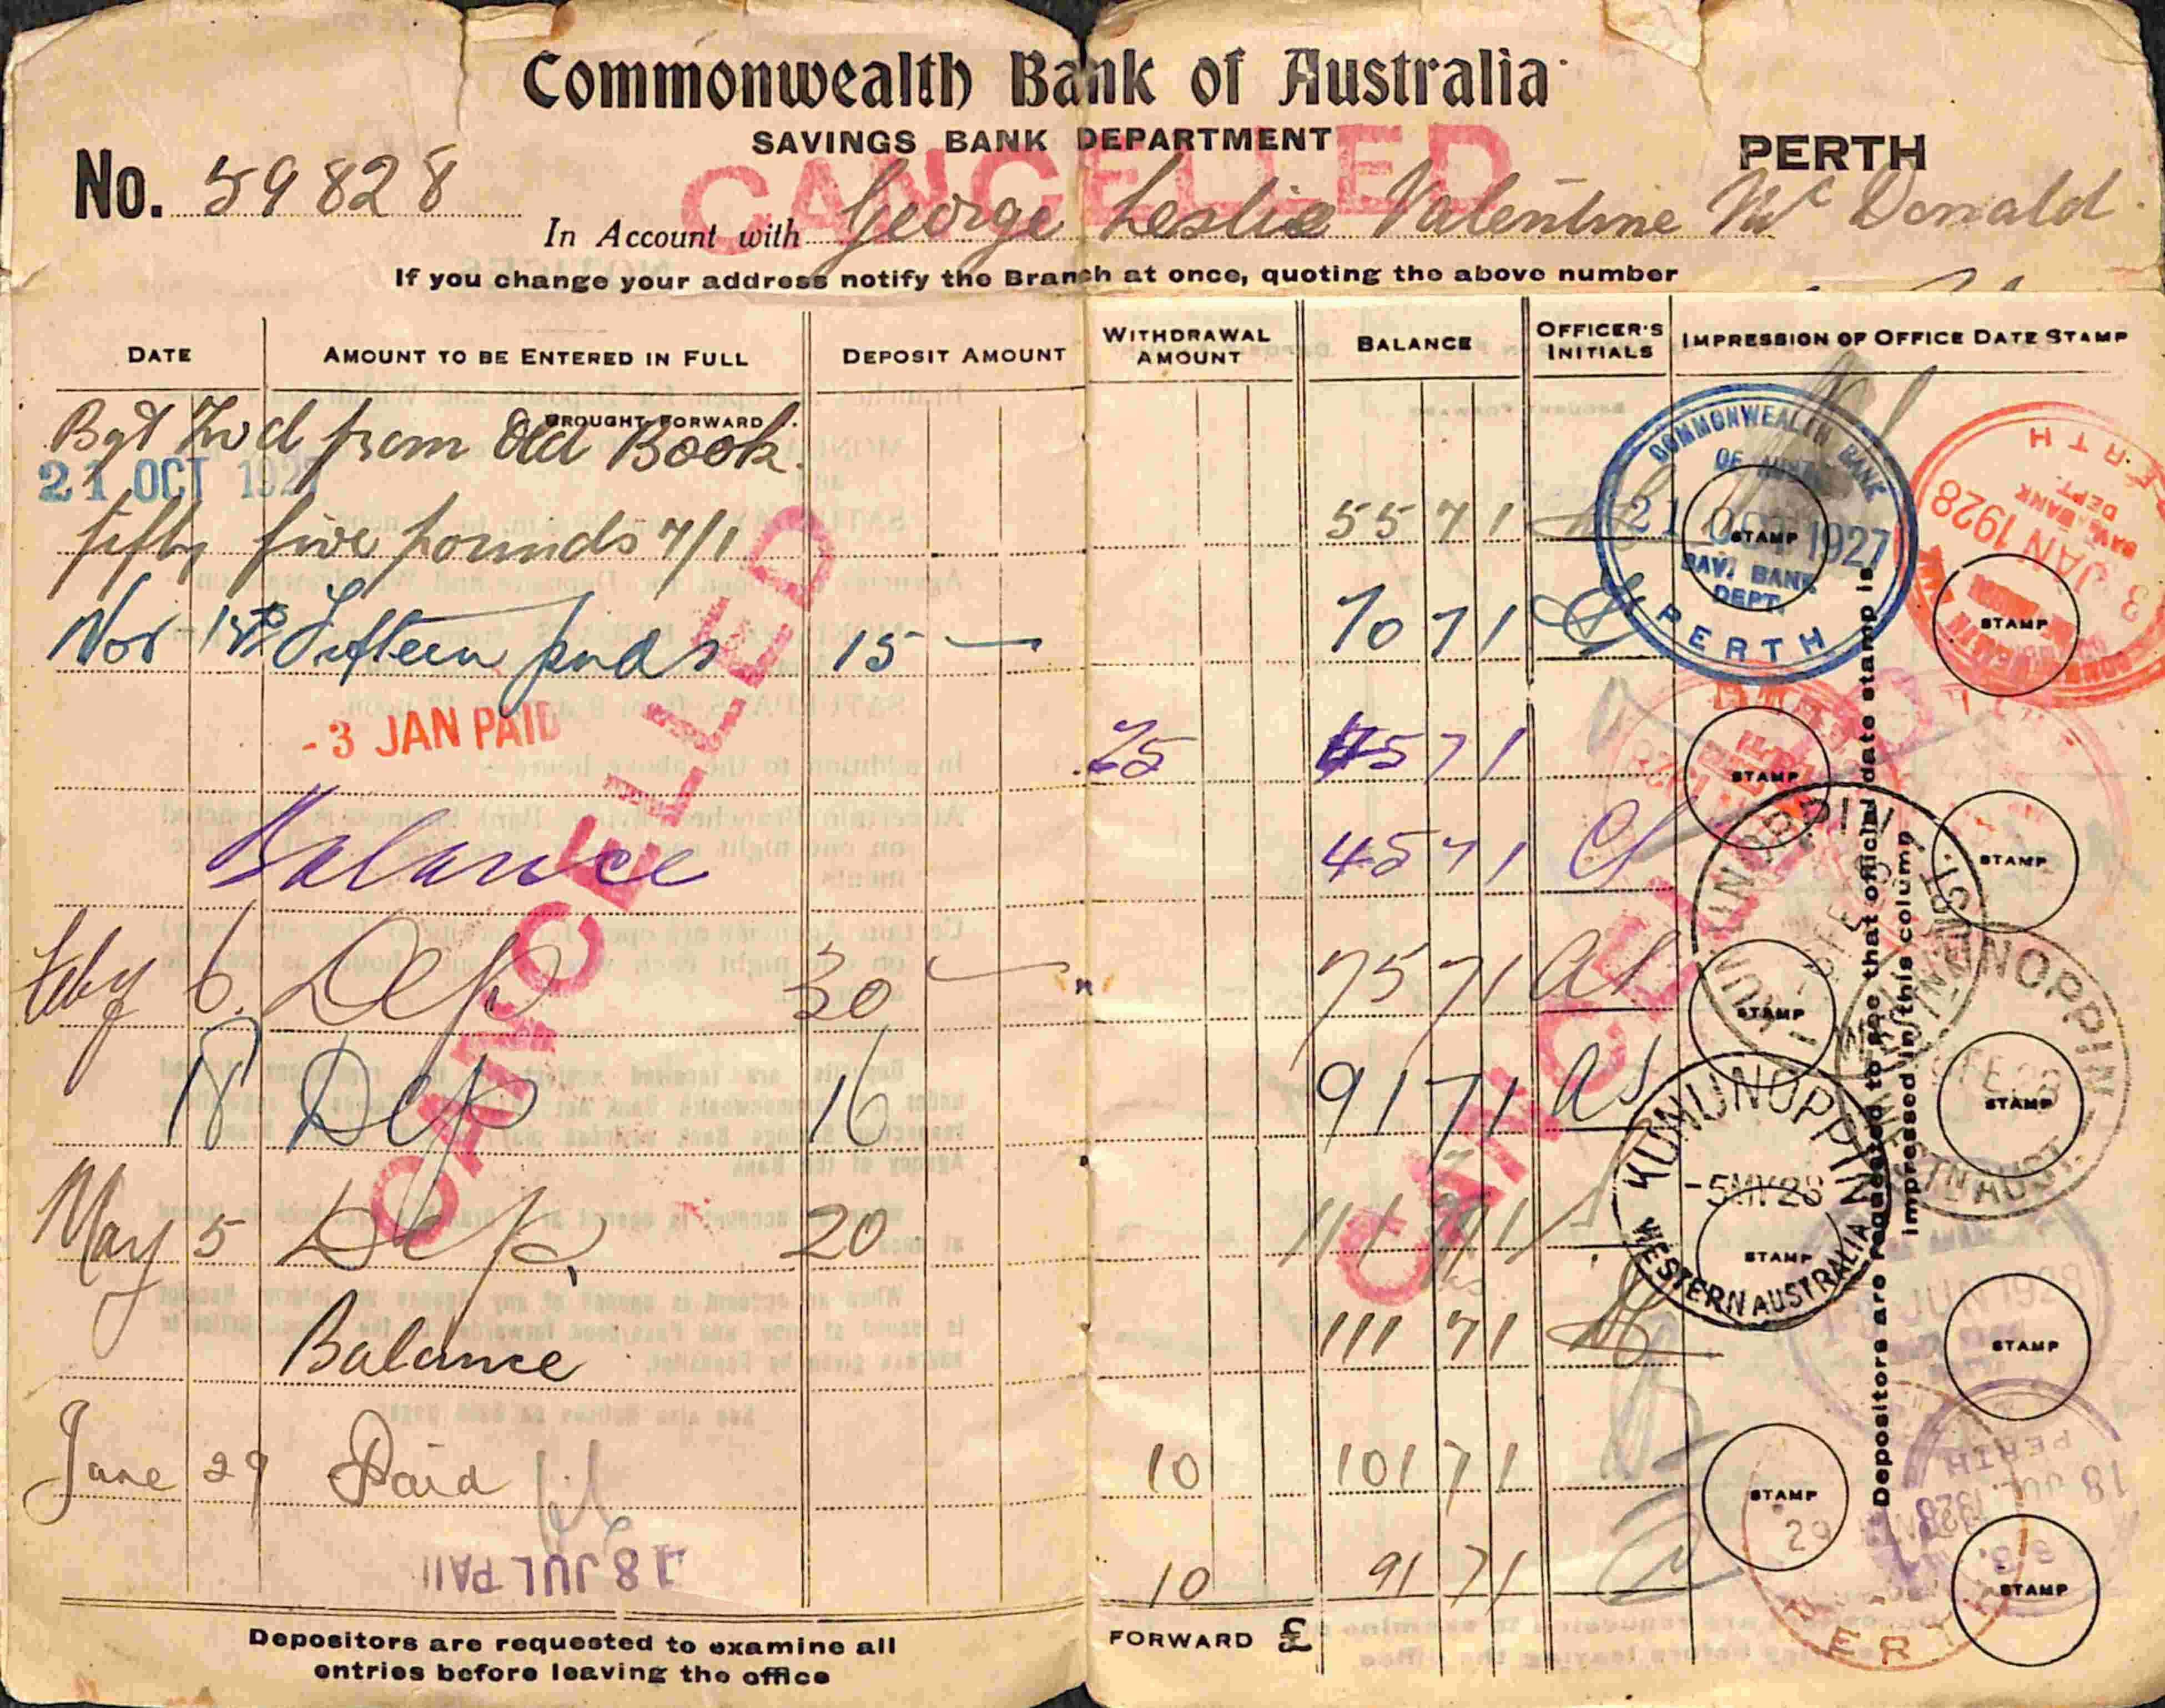 Commonwealth Bank of Australia
SAVINGS BANK DEPARTMENT
PERTH
No. 59828
CANCELLED
In Account with George Leslie Valentine Mc Donald
If you change your address notify the Branch at once, quoting the above number
DATE AMOUNT TO BE ENTERED IN FULL DEPOSIT AMOUNT WITHDRAWAL AMOUNT BALANCE OFFICER'S INITIALS IMPRESSION OF OFFICE DATE STAMP
BROUGHT FORWARD
Bgt Fwd from Old Book.
21 OCT 1927
fifty five pounds 7/1 55 7 1
Nov Fifteen 15 — 70 7 1
- 3 JAN PAID 25 45 7 1
Balance 45 7 1
Feby 6. Dep 30 — 75 7 1
18 Dep 16 91 7 1
May 5 Dep. 20 111 7 1
Balance 111 7 1
June 29 Paid 10 101 7 1
18 JUL PAI 10 91 7 1
FORWARD £
Depositors are requested to examine all
entries before leaving the office
CANCELLED
CANCELL
COMMONWEALTH BANK
OF
21 OCT 1927
SAV. BANK
DEPT.
PERTH
3 JAN 1928
SAV. BANK
DEPT.
KUNUNOPPIN
-5MY28
WESTERN AUSTRALIA
JUN 1928
18 JUL 1928
PERTH
STAMP
STAMP
STAMP
STAMP
STAMP
STAMP
STAMP
STAMP
STAMP
STAMP
Depositors are requested to see that official date stamp is
impressed in this column